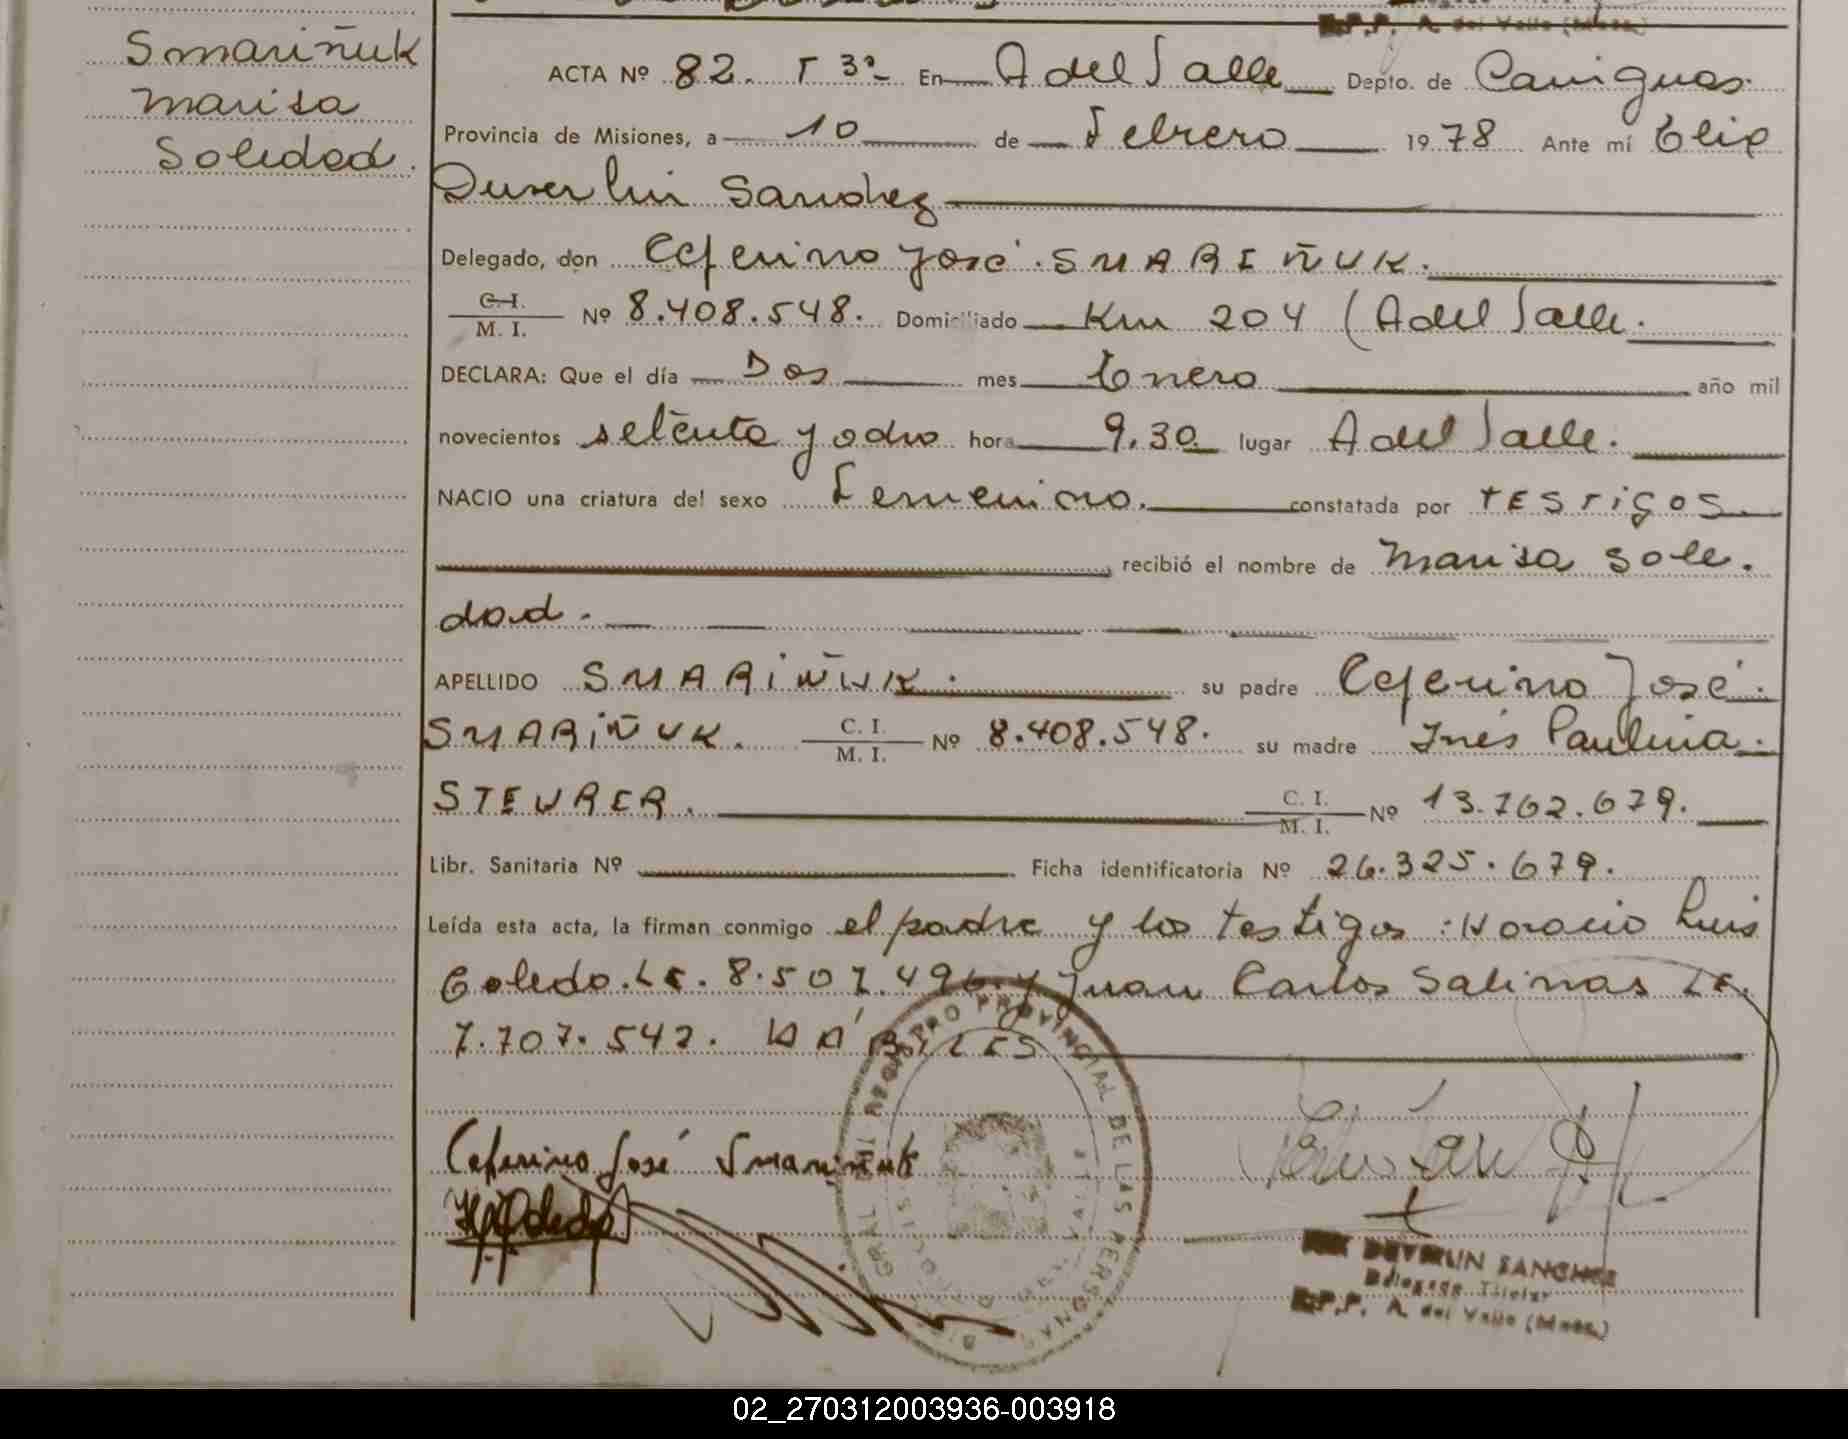 Smariñuk
Marisa
Soledad.
R.P.P. A. del Valle (Mnes.)
ACTA Nº 82. T 3º En A del Valle Depto. de Cainguas.
Provincia de Misiones, a 10 de Febrero 1978 Ante mí Elio
Duverlin Sanchez
Delegado, don Ceferino José SMARIÑUK.
C. I.
M. I. Nº 8.408.548. Domiciliado Km 204 (A del Valle.
DECLARA: Que el día Dos mes Enero año mil
novecientos setenta y ocho hora 9.30 lugar A del Valle.
NACIO una criatura del sexo Femenino. constatada por TESTIGOS
recibió el nombre de Marisa Sole.
dad.
APELLIDO SMARIÑUK. su padre Ceferino José.
SMARIÑUK. C. I.
M. I. Nº 8.408.548. su madre Inés Paulina.
STEURER. C. I.
M. I. Nº 13.762.679.
Libr. Sanitaria Nº Ficha identificatoria Nº 26.325.679.
Leída esta acta, la firman conmigo el padre y los testigos: Horacio Luis
Toledo. LE. 8.507.496. y Juan Carlos Salinas LE.
7.707.542. HÁBILES
REGISTRO PROVINCIAL DE LAS PERSONAS
Ceferino José Smariñuk
DUVERLIN SANCHEZ
Delegado Titular
R.P.P. A. del Valle (Mnes.)
02_270312003936-003918